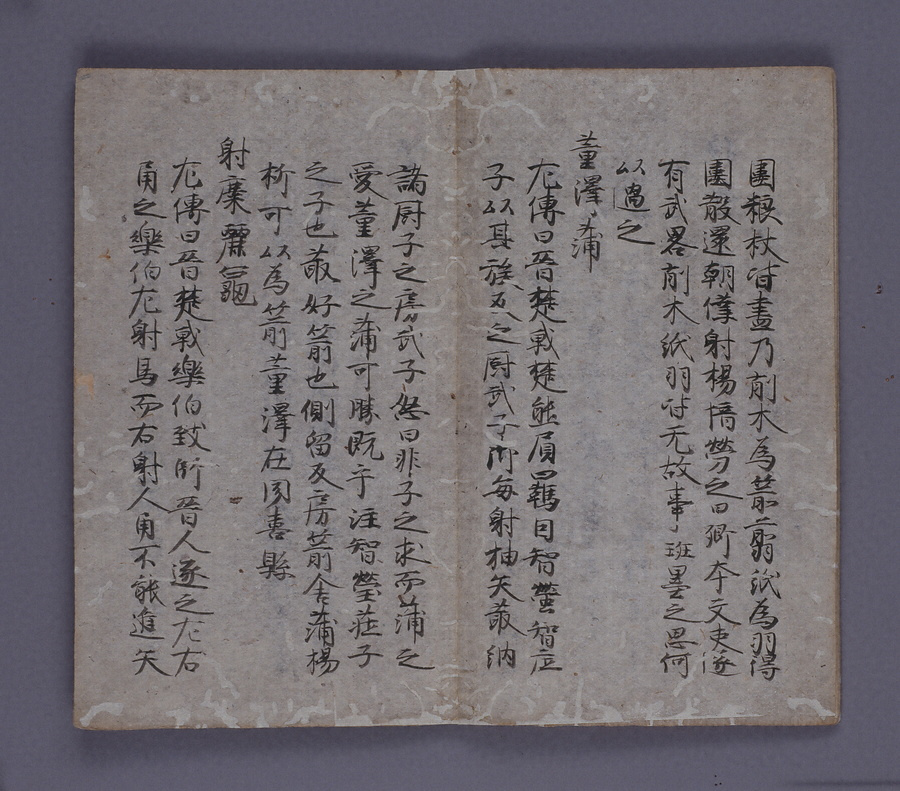 圍粮杖皆盡乃削木為箭翦紙為羽得
圍散還朝僕射楊愔勞之曰卿本文吏遂
有武畧削木紙羽皆无故事班墨之思何
以過之
董澤蒲
左傳曰晋楚戰楚熊負羈囚智罃智庄
子以其族反之厨武子御每射抽矢菆納
諸厨子之房武子怒曰非子之求而蒲之
愛董澤之蒲可勝既乎注智罃莊子
之子也菆好箭也側留反房箭舎蒲楊
柳可以為箭董澤在聞喜縣
射麋麗龜
左傳曰晋楚戰樂伯致師晋人逐之左右
角之樂伯左射馬而右射人角不能進矢